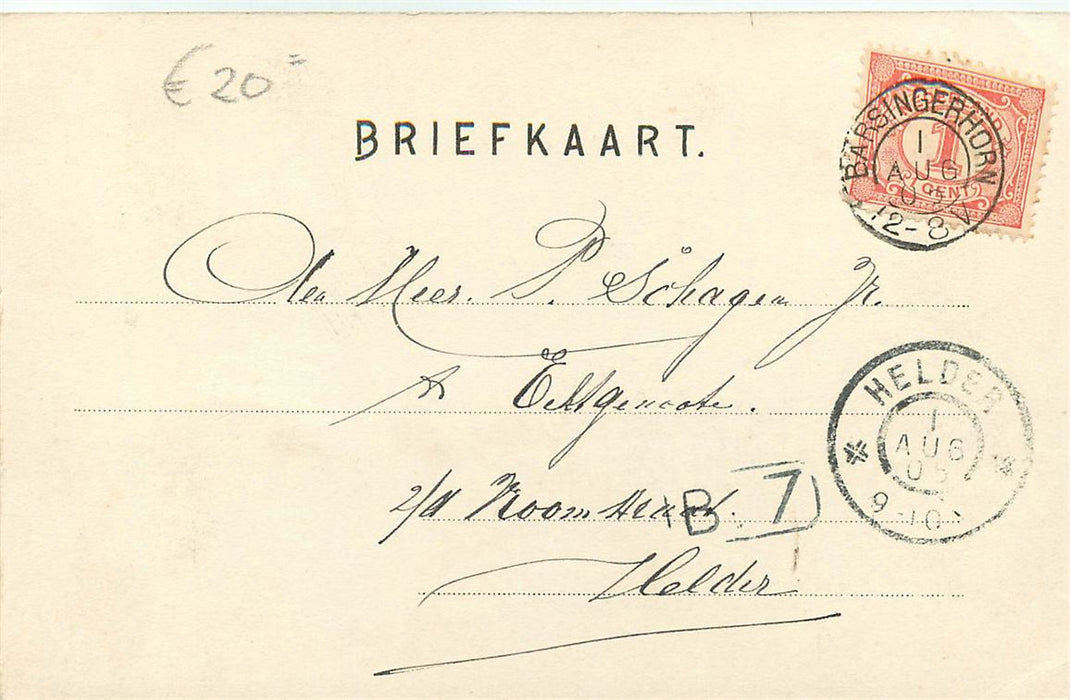 € 20=
BRIEFKAART.
BARSINGERHORN
1
AUG
12-8 V
1
CENT
Den Heer. P. Schagen Jr.
& Echtgenoote.
HELDER
1
AUG
9-10
B. 7
Helder